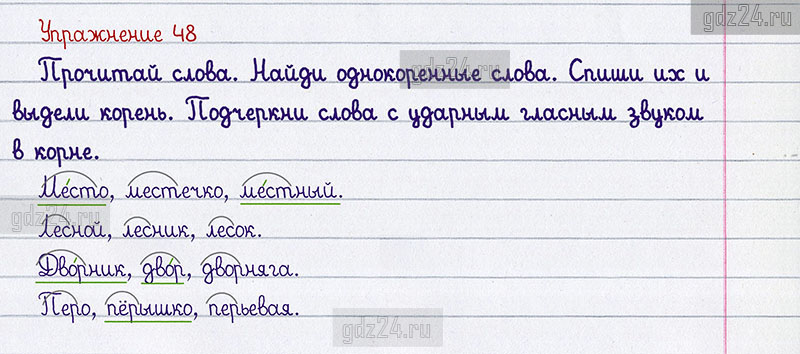 gdz24.ru
Упражнение 48
Прочитай слова. Найди однокоренные слова. Спиши их и
gdz24.ru
выдели корень. Подчеркни слова с ударным гласным звуком
в корне.
Ме́сто, местечко, ме́стный.
gdz24.ru
Лесной, лесник, лесок.
Дво́рник, дво́р, дворняга.
Перо, пёрышко, перьевая.
gdz24.ru